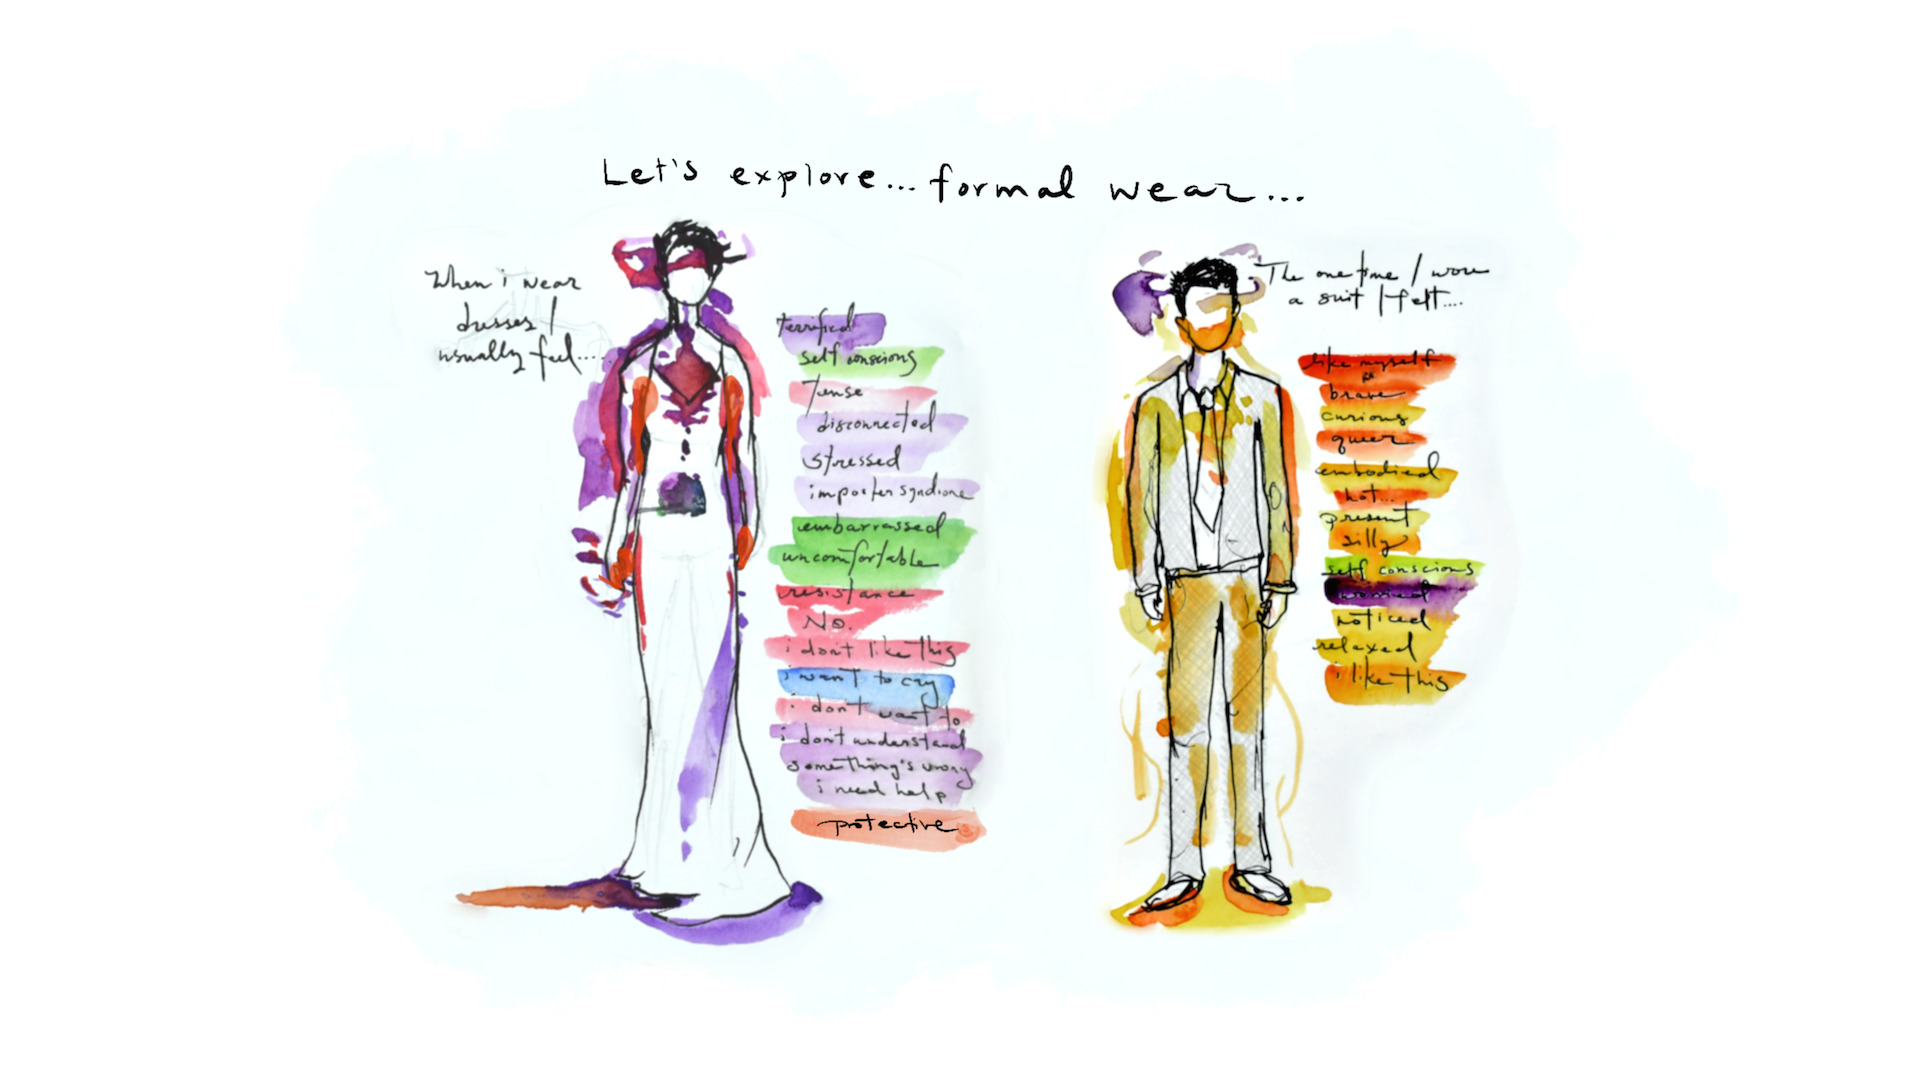 Let's explore... formal wear...
When i wear
dresses I
usually feel.....
terrified
self conscious
Tense
disconnected
stressed
imposter syndrome
embarrassed
uncomfortable
resistance
No.
i don't like this
i want to cry
i don't want to
i don't understand
something's wrong
i need help
protective
The one time I wore
a suit I felt....
like myself
brave
curious
queer
embodied
hot...
present
silly
self conscious
worried
noticed
relaxed
i like this